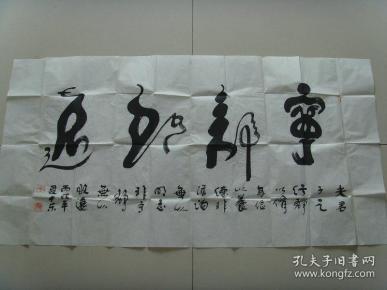 寧靜致遠
夫君
子之
行靜
以修
身儉
以養
德非
澹泊
無以
明志
非寧
靜
無以
致遠
孔夫子旧书网